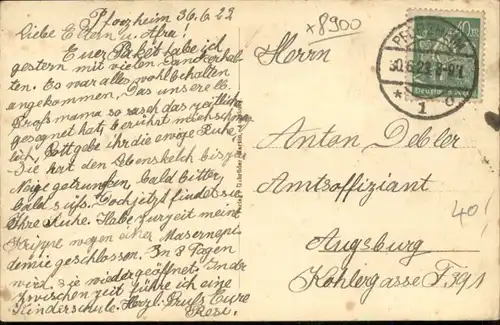 Pforzheim 30.6.22
Liebe Eltern u. Afra!
Euer Paket habe ich
gestern mit vielen Dank erhal-
ten. Es war alles wohlbehalten
angekommen. Das unsere lb.
Großmama so rasch das zeitliche
gesegnet hat, berührt mich schmerz-
lich, Gott gebe ihr die ewige Ruhe!
Sie hat den Lebenskelch bis zur
Neige getrunken, bald bitter,
bald süß. Doch jetzt findet sie
Ihre Ruhe. Habe zurzeit meine
Krippe wegen einer Masernepi-
demie geschlossen. In 8 Tagen
wird sie wiedergeöffnet. In der
Zwischenzeit führe ich eine
Kinderschule. Herzl. Gruß Eure
Resi.
+8900
Herrn
Anton Debler
Amtsoffiziant
40!
Augsburg
Kohlergasse F 391
40
30.6.22.8-9
* 1